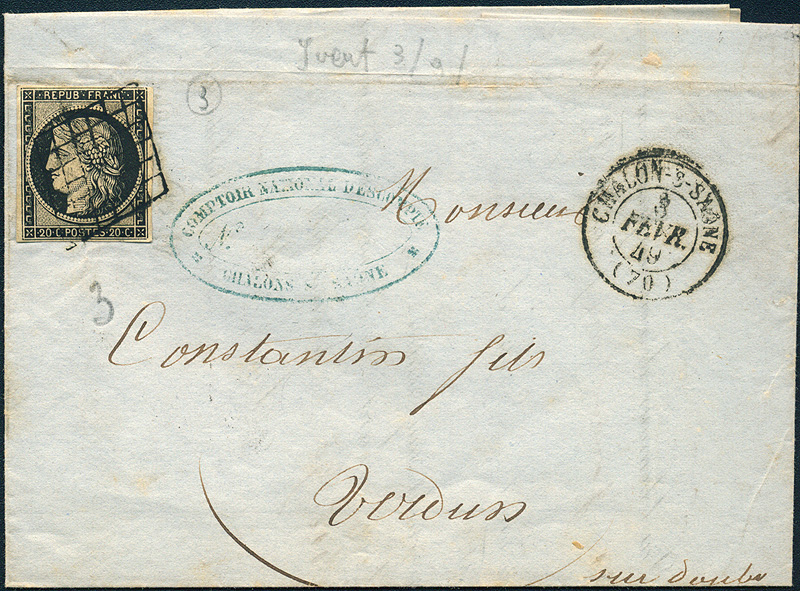 Yvert 3/a/
3
REPUB. FRANC.
20.C. POSTES. 20.C.
COMPTOIR NATIONAL D'ESCOMPTE
N°
CHALONS S. SAONE
CHALON-S-SAONE
3
FEVR.
49
(70)
Monsieur
3
Constantin fils
Verdun
sur doubs